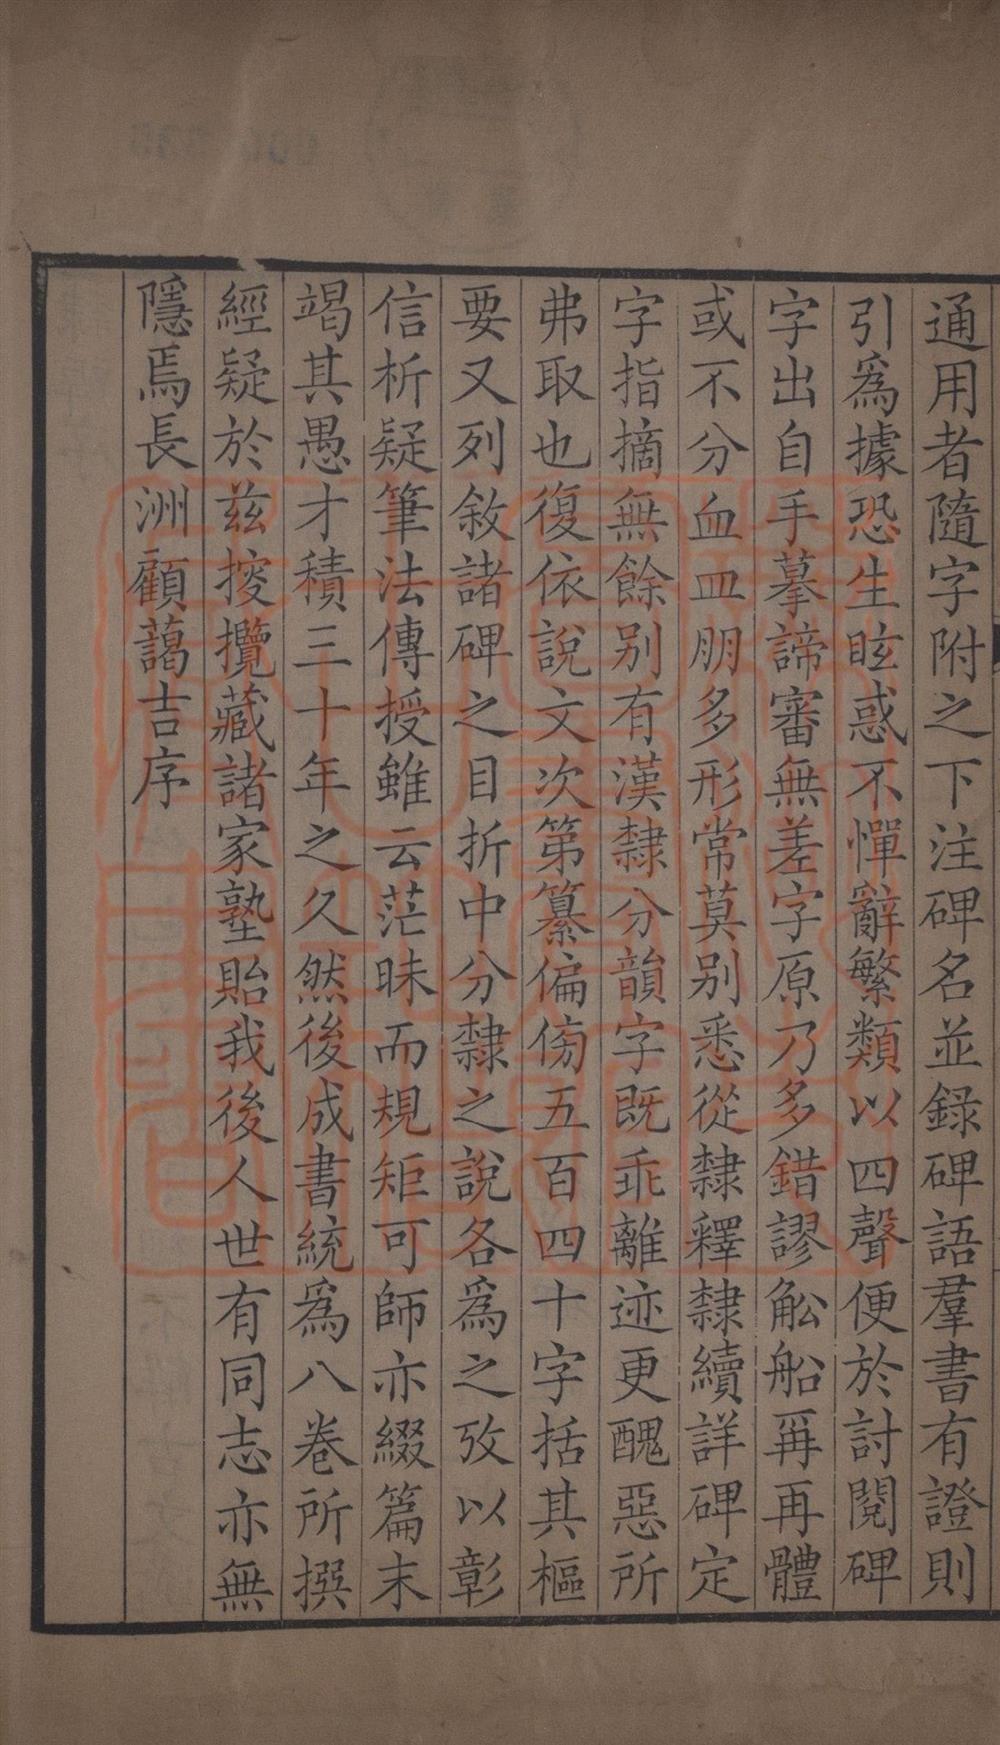 通用者隨字附之下注碑名並録碑語羣書有證則
引爲據恐生眩惑不憚辭繁類以四聲便於討閱碑
字出自手摹諦審無差字原乃多錯謬舩船再再體
或不分血皿朋多形常莫别悉從隸釋隸續詳碑定
字指摘無餘别有漢隸分韻字既乖離迹更醜惡所
弗取也復依說文次第纂偏傍五百四十字括其樞
要又列敘諸碑之目折中分隸之說各爲之攷以彰
信析疑筆法傳授雖云茫昧而規矩可師亦綴篇末
竭其愚才積三十年之久然後成書統爲八卷所撰
經疑於兹挍攬藏諸家塾貽我後人世有同志亦無
隱焉長洲顧藹吉序